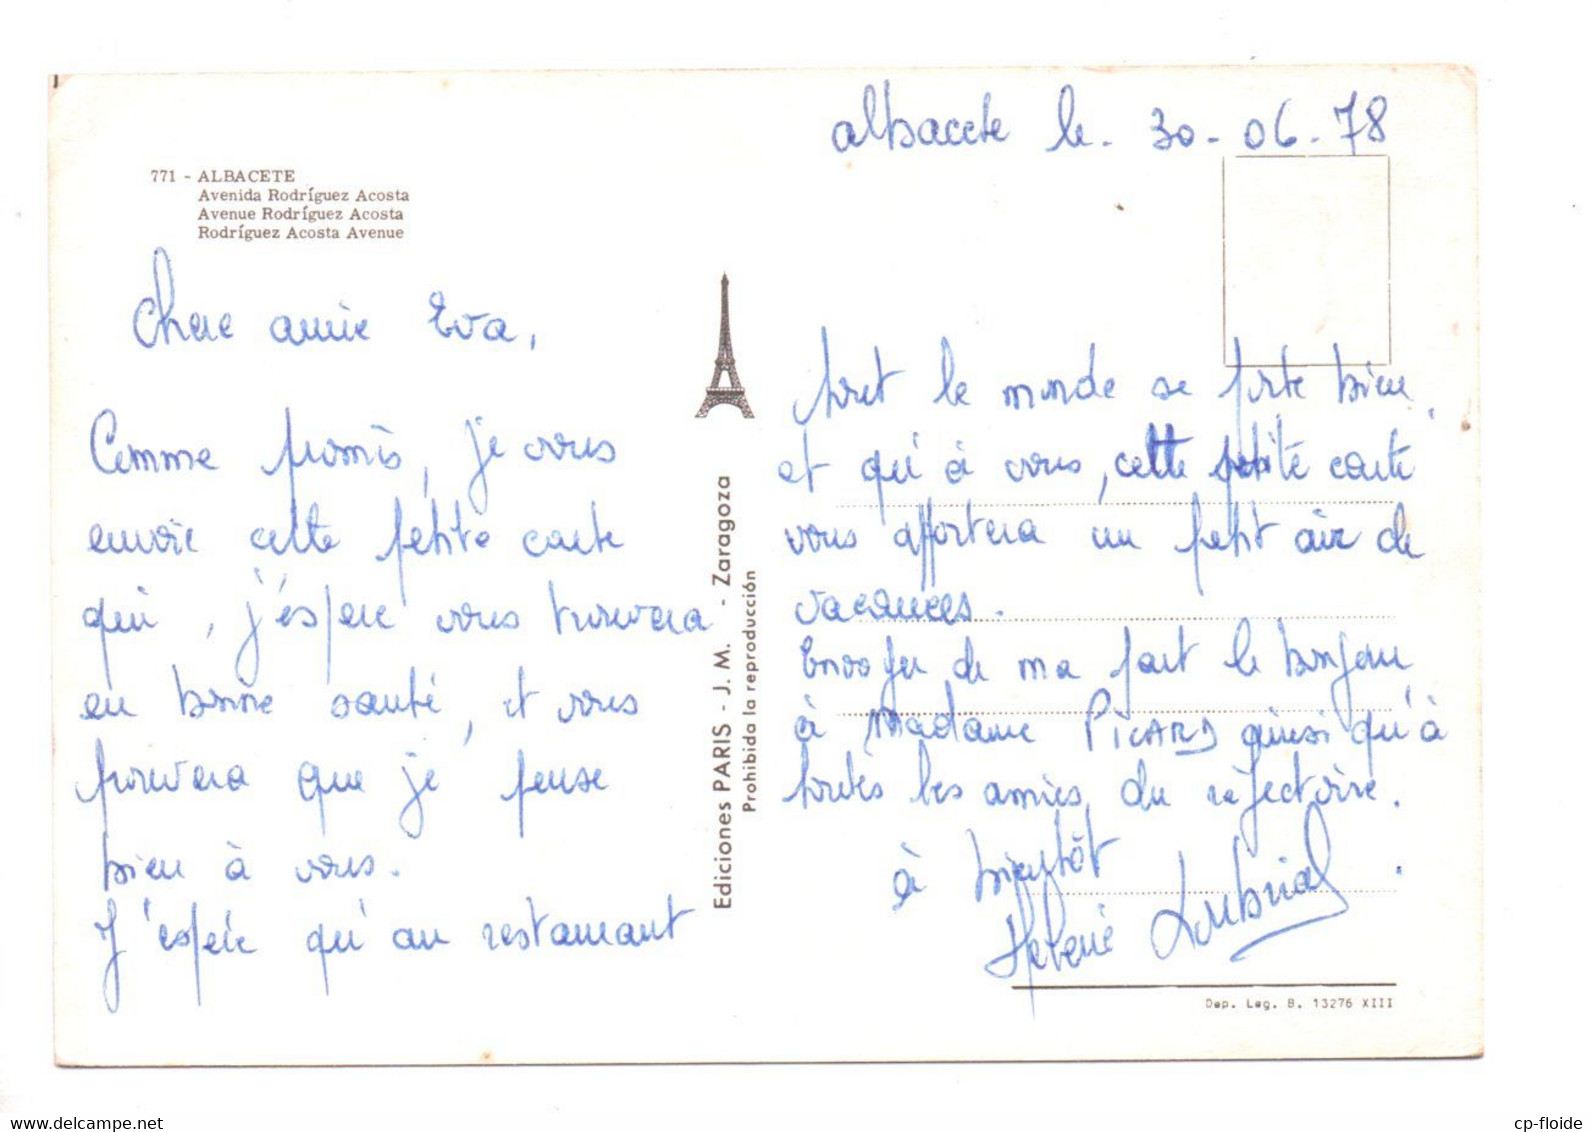 albacete le. 30-06-78
771 - ALBACETE
Avenida Rodríguez Acosta
Avenue Rodríguez Acosta
Rodríguez Acosta Avenue
Chère amie Eva,
Comme promis, je vous
envoie cette petite carte
qui, j'espère vous trouvera
en bonne santé, et vous
prouvera que je pense
bien à vous.
J'espère qu'au restaurant
tout le monde se porte bien,
et qu'à vous, cette petite carte
vous apportera un petit air de
vacances.
Envoyer de ma part le bonjour
à Madame PICARD ainsi qu'à
toutes les amies du réfectoire.
à bientôt
Hélène
Ediciones PARIS - J. M. - Zaragoza
Prohibida la reproducción
Dep. Leg. B. 13276 XIII
www.delcampe.net
cp-floide